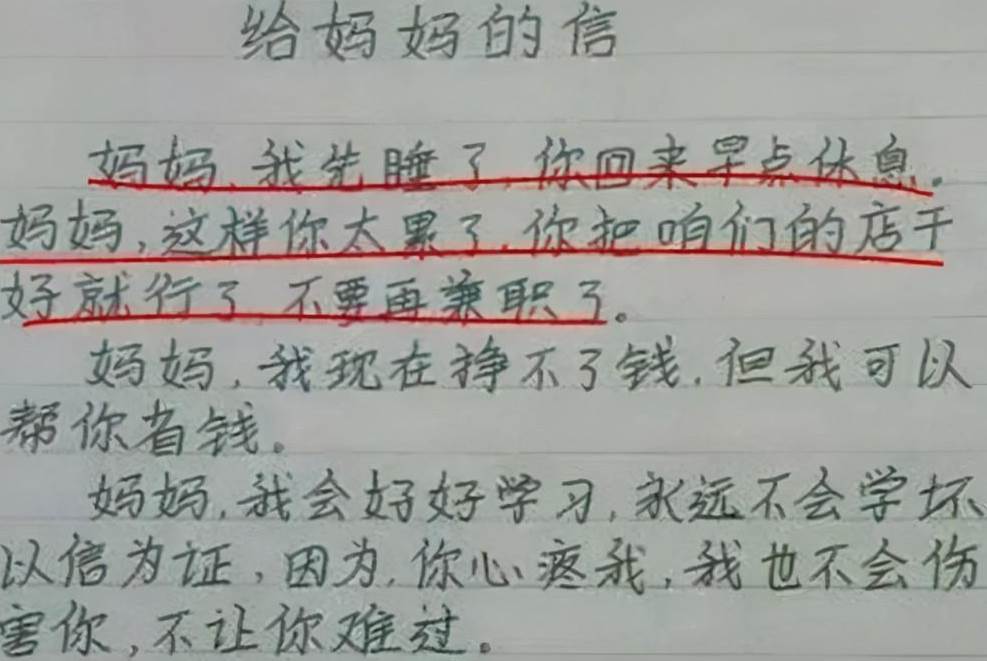 给妈妈的信
妈妈,我先睡了,你回来早点休息。
妈妈,这样你太累了,你把咱们的店干
好就行了,不要再兼职了。
妈妈,我现在挣不了钱,但我可以
帮你省钱。
妈妈,我会好好学习,永远不会学坏
以信为证,因为,你心疼我,我也不会伤
害你,不让你难过。